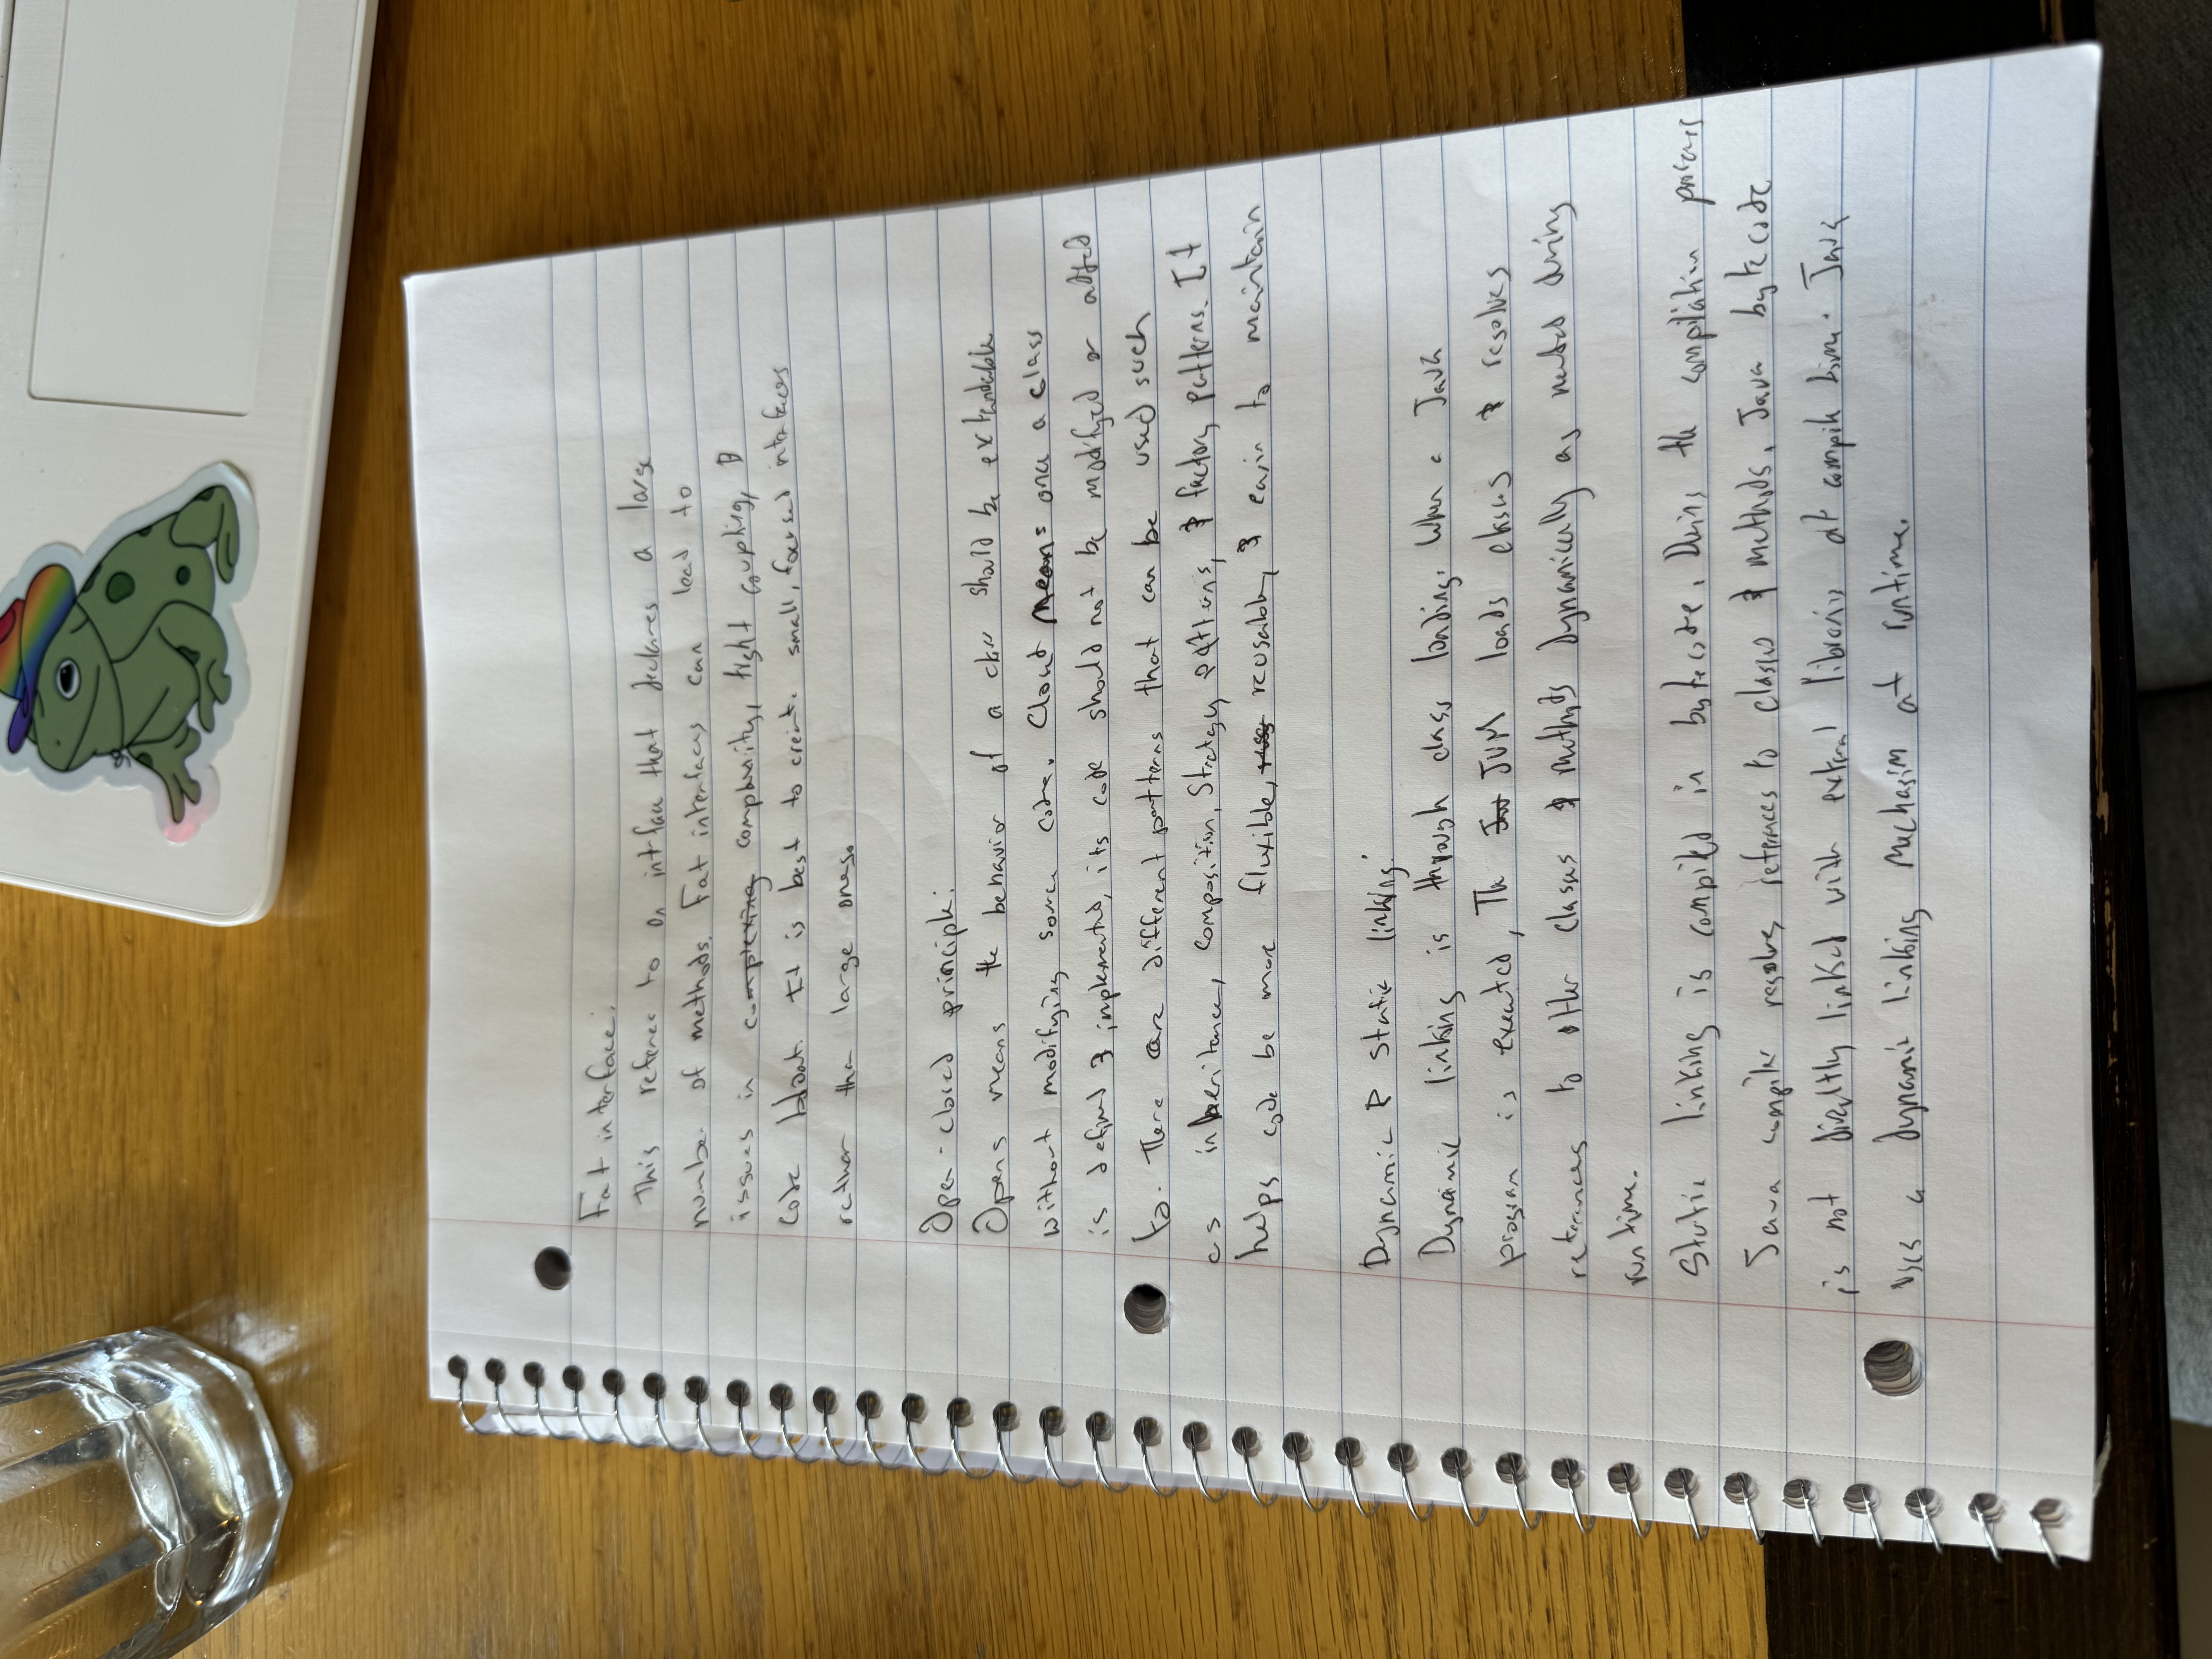 Fat interface:
This referes to an intface that declares a large
number of methods. Fat interfaces can lead to
issues in complexity, tight coupling, &
code bloat. It is best to create small, focused interfaces
rather than large ones.
Open-closed principle:
Opens means the behavior of a class should be extendable
without modifying source code. Closed means once a class
is defined & implemented, its code should not be modifyed or added
to. There are different patterns that can be used such
as inheritance, composition, Strategy patterns, & factory patterns. It
helps code be more fluxible, reusable, & easier to maintain
Dynamic & Static linking:
Dynamic linking is through class loading. When a Java
program is executed, The JVM loads classes & resolves
references to other classes & methods dynamically as needed during
runtime.
Static linking is compiled in bytecode. During the compilation
Java compiler resolves references to classes & methods. Java bytecode
is not directly linked with external libraries at compile time. Java
uses a dynamic linking mechasim at runtime.